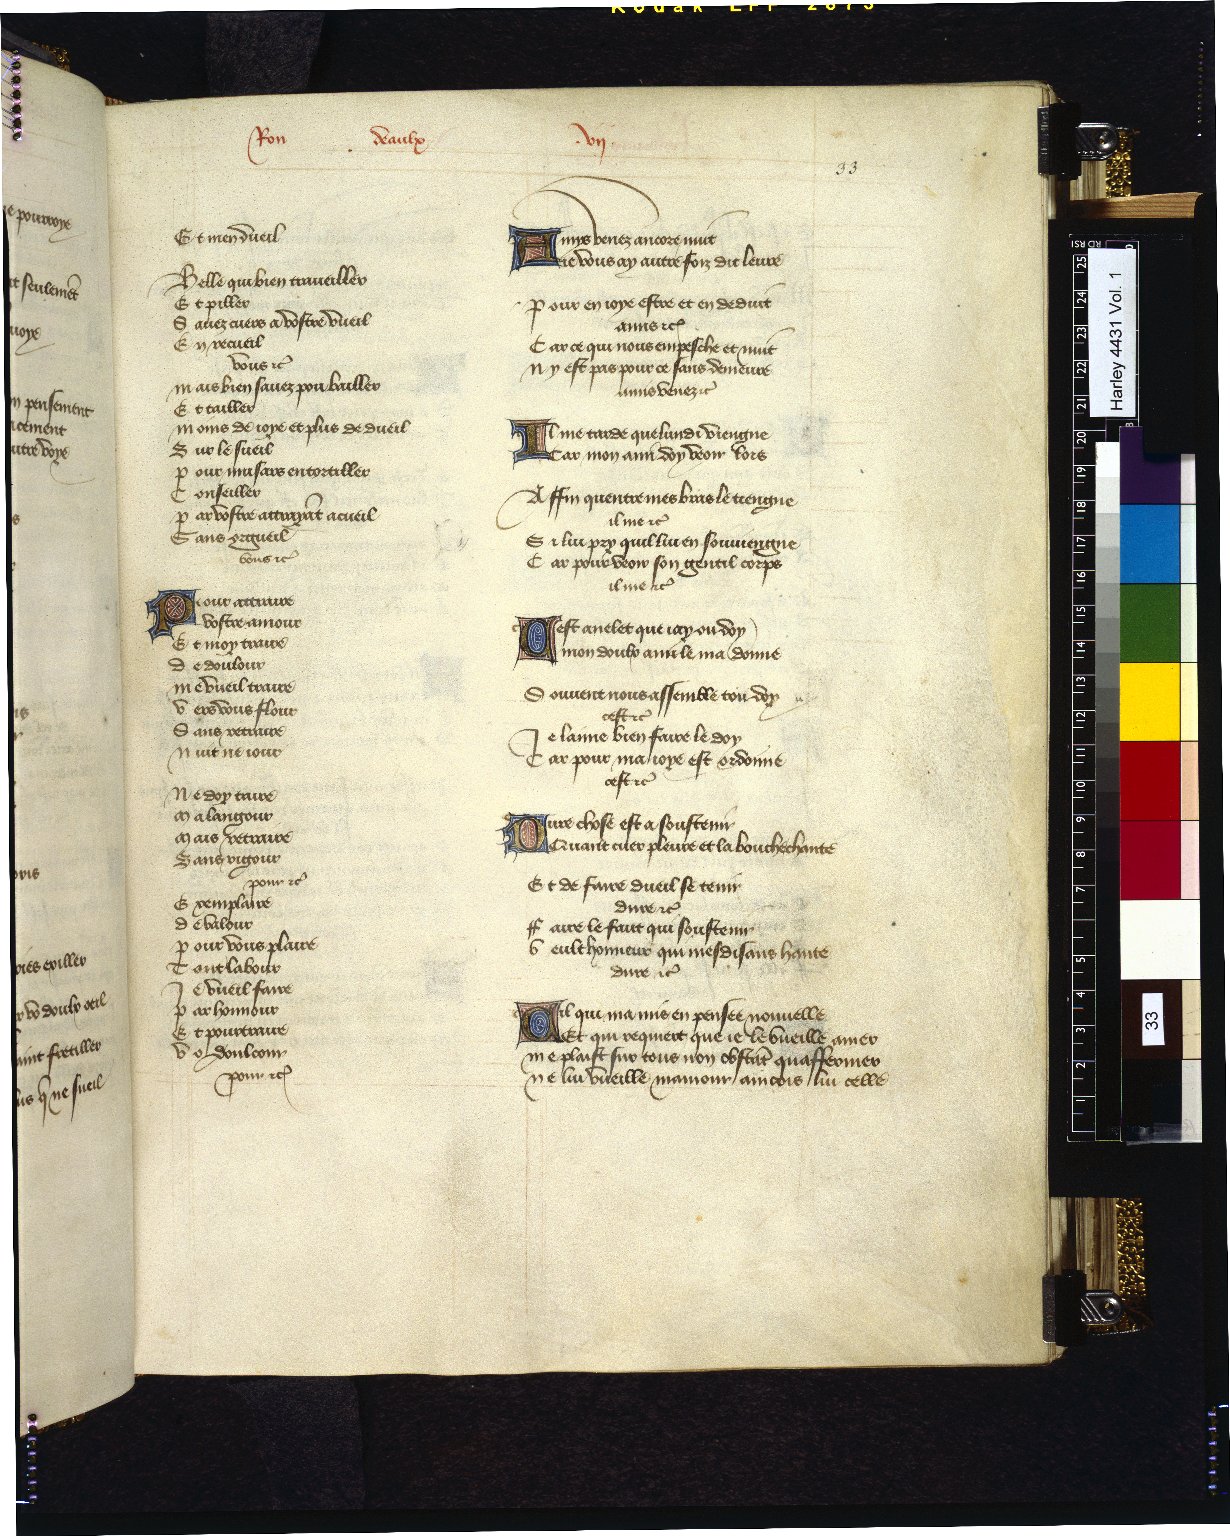 Kodak
Ron deaulx .vij.
33
E t men dueil
Belle qui bien traveiller
E t piller
S avez cuers a vostre vueil
E n recueil
vous etc
M ais bien savez pou bailler
E t tailler
M oins de joye et plus de dueil
S ur le sueil
P our musars entortiller
C onseiller
P ar vostre attrayāt acueil
S ans orgueil
vous etc
Pour attraire
vostre amour
E t moy traire
D e doulour
M e vueil traire
V ers vous flour
S ans retraire
N uit ne jour
N e doy taire
M a langour
M ais retraire
S ans rigour
pour etc
E xemplaire
D e valour
P our vous plaire
T ont labour
J e vueil faire
P ar honnour
E t pourtraire
V o doulcour
pour etc
Amis venez ancore nuit
Je vous ay autre foiz dit leure
P our en joye estre et en deduit
amis etc
C ar ce qui nous empesche et nuit
N y est pas pour ce sans demeure
amis venez etc
Il me tarde que lundi viengne
Car mon ami doy veoir lors
A ffin quentre mes bras le tiengne
il me etc
S i lui pry quil lui en souviengne
C ar pour veoir son gentil corps
il me etc
Cest anelet que jay ou doy
mon doulx ami le ma donné
S ouvent nous assemble tou doy
cest etc
J e laime bien faire le doy
C ar pour ma joye est ordonné
cest etc
Dure chose est a soustenir
Quant cuer pleure et la bouche chante
E t de faire dueil se tenir
dure etc
ff aire le faut qui soustenir
V eult honneur qui mesdisans hante
dure etc
Cil qui ma mis en pensee nouvelle
Et qui requiert que je le vueille amer
M e plaist sur tous non obstāt quaffermer
N e lui vueille mamour aincois lui celle
e pourroye
t seulemēt
voye
n pensement
cement
utre voye
ries eviller
vo doulx oeil
aint fretiller
us q̄ ne sueil
Harley 4431 Vol. 1
33
25
24
23
22
21
20
19
18
17
16
15
14
13
12
11
10
9
8
7
5
4
3
2
1